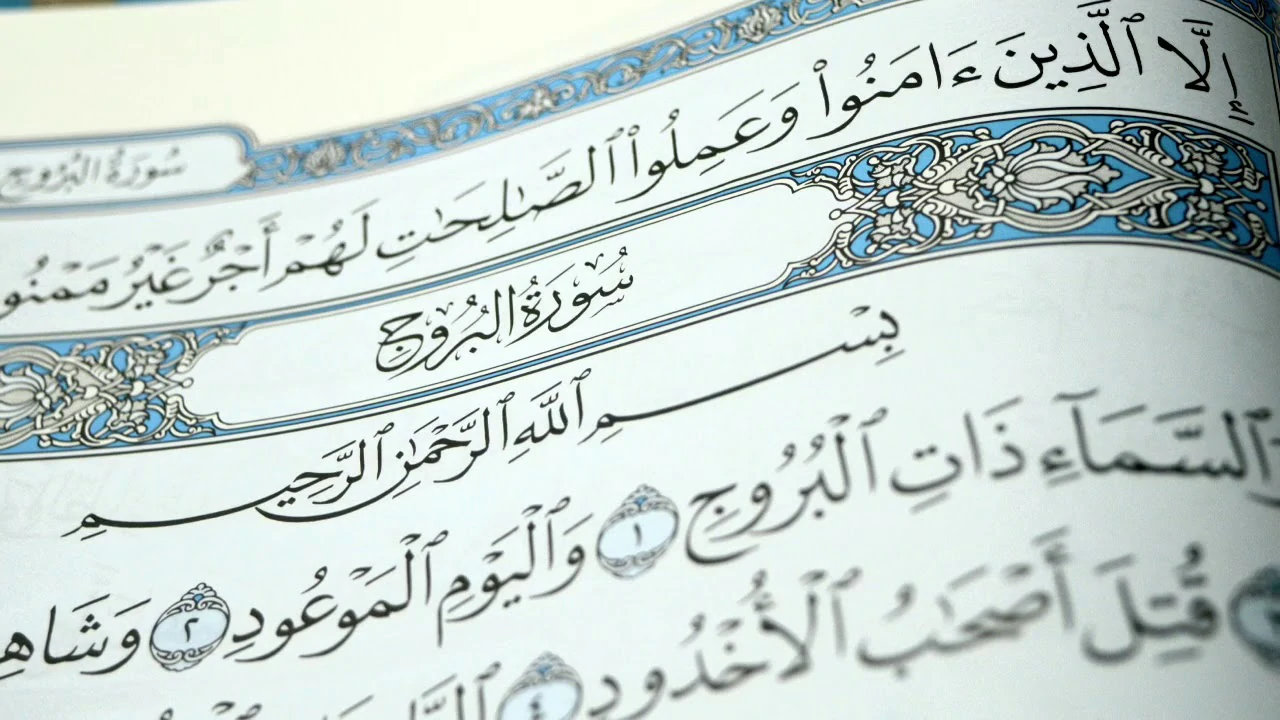 سُورَةُ البُرُوجِ
إِلَّا ٱلَّذِينَ ءَامَنُوا۟ وَعَمِلُوا۟ ٱلصَّـٰلِحَـٰتِ لَهُمْ أَجْرٌ غَيْرُ مَمْنُو
سُورَةُ البُرُوجِ
بِسْمِ ٱللَّهِ ٱلرَّحْمَـٰنِ ٱلرَّحِيمِ
ٱلسَّمَآءِ ذَاتِ ٱلْبُرُوجِ ١ وَٱلْيَوْمِ ٱلْمَوْعُودِ ٢ وَشَاهِ
قُتِلَ أَصْحَـٰبُ ٱلْأُخْدُودِ ٤